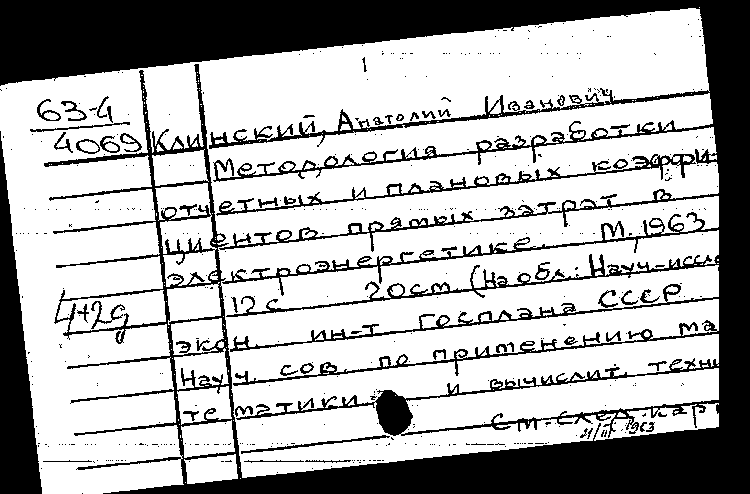 1
63-4
4069 Клинский, Анатолий Иванович
Методология разработки
отчетных и плановых коэффи-
циентов прямых затрат в
электроэнергетике. М., 1963
12 с 20 см. (На обл.: Науч.-иссле
4+2д
экон. ин-т Госплана СССР.
Науч. сов. по применению ма
тематики и вычислит. техни
См. след. кар